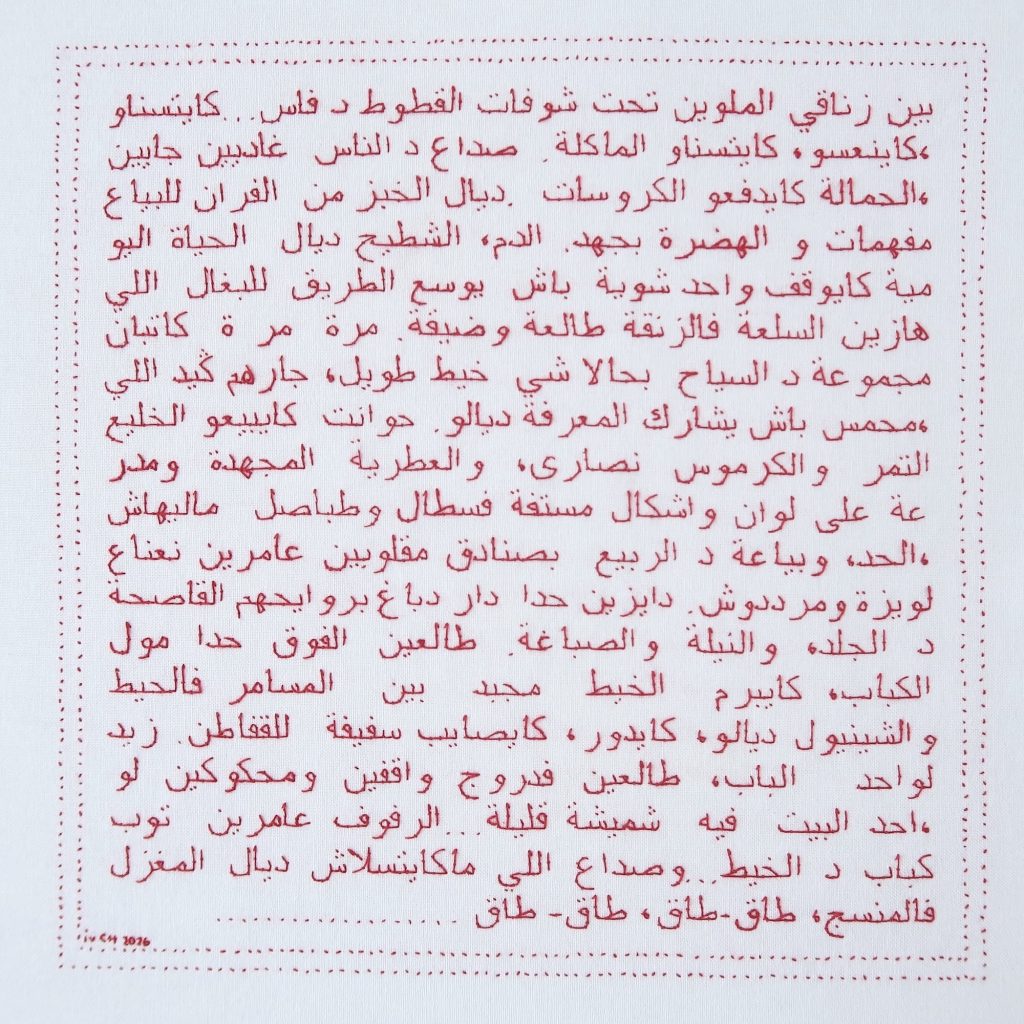 بين زناقي الملوين تحت شوفات القطوط د فاس...كايتسناو
،كاينعسو، كايتسناو الماكلة. صداع د الناس غاديين جايين
،الحمالة كايدفعو الكروسات .ديال الخبز من الفران للبياع
مفهمات و الهضرة بجهد. الدم، الشطيح ديال الحياة اليو
مية كايوقف واحد شوية باش يوسع الطريق للبغال اللي
هازين السلعة فالزنقة طالعة وضيقة. مرة مر ة كاتبان
مجموعة د السياح بحالا شي خيط طويل، جارهم ݣيد اللي
،محمس باش يشارك المعرفة ديالو. حوانت كايبيعو الخليع
التمر والكرموس نصارى، والعطرية المجهدة ومدر
عة على لوان واشكال مستفة فسطال وطباصل ماليهاش
،الحد، وبياعة د الربيع بصنادق مقلوبين عامرين نعناع
لويزة ومرددوش. دايزين حدا دار دباغ بروايحهم القاصحة
د الجلد، والنيلة والصباغة. طالعين الفوق حدا مول
الكباب، كايبرم الخيط مجبد بين المسامر فالحيط
والشينيول ديالو، كايدور، كايصايب سفيفة للقفاطن. زيد
لواحد الباب، طالعين فدروج واقفين ومحكوكين لو
،احد البيت فيه شميشة قليلة...الرفوف عامرين توب
كباب د الخيط...وصداع اللي ماكايتسلاش ديال المغزل
فالمنسج، طاق-طاق، طاق- طاق ..................
2026